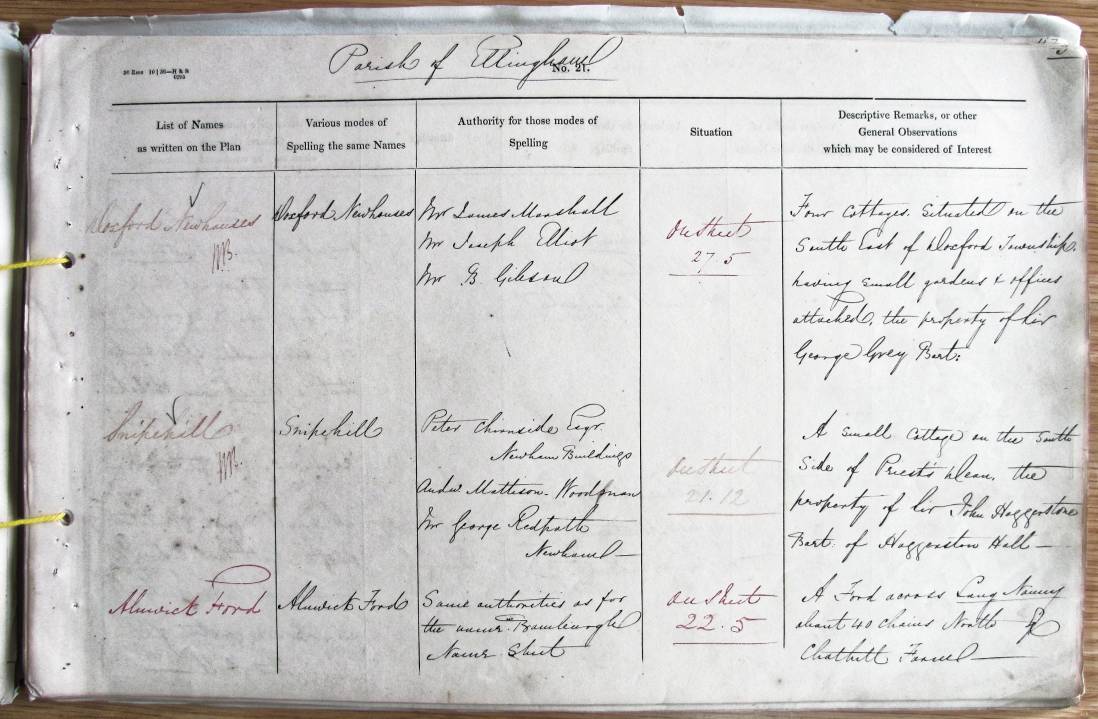 Parish of Ellingham
No. 21.
List of Names
as written on the Plan
Various modes of
Spelling the same Names
Authority for those modes of
Spelling
Situation
Descriptive Remarks, or other
General Observations
which may be considered of Interest
Doxford Newhouses
Doxford Newhouses
Mr James Marshall
Mr Joseph Elliot
Mr B. Gibson
On Sheet
27.5
Four Cottages. Situated on the
South East of Doxford Township.
having small gardens & offices
attached, the property of Sir
George Grey Bart:
Snipehill
Snipehill
Peter Chirnside Esqr.
Newham Buildings
Andw. Mattison. Woodman
Mr George Redpath
Newham
On Sheet
21.12
A small Cottage on the South
Side of Priest's Dean, the
property of Sir John Haggerstone
Bart. of Haggerston Hall
Alnwick Ford
Alnwick Ford
Same authorities as for
the name. Bamburgh
Name Sheet
On Sheet
22.5
A Ford across Long Nanny
about 40 chains North of
Chathill Farm